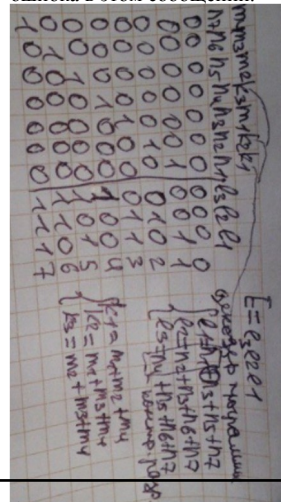 ошибка в этом сообщении.
E = e3e2e1
m4m3m2k3m1k2k1
n7n6n5n4n3n2n1 e3e2e1
0 0 0 0 0 0 0 0 0 0 0
0 0 0 0 0 0 1 0 0 1 1
0 0 0 0 0 1 0 0 1 0 2
0 0 0 0 1 0 0 0 1 1 3
0 0 0 1 0 0 0 1 0 0 4
0 0 1 0 0 0 0 1 0 1 5
0 1 0 0 0 0 0 1 1 0 6
1 0 0 0 0 0 0 1 1 1 7
e1=n1+n3+n5+n7
e2=n2+n3+n6+n7
e3=n4+n5+n6+n7
k1=m1+m2+m4
k2=m1+m3+m4
k3=m2+m3+m4